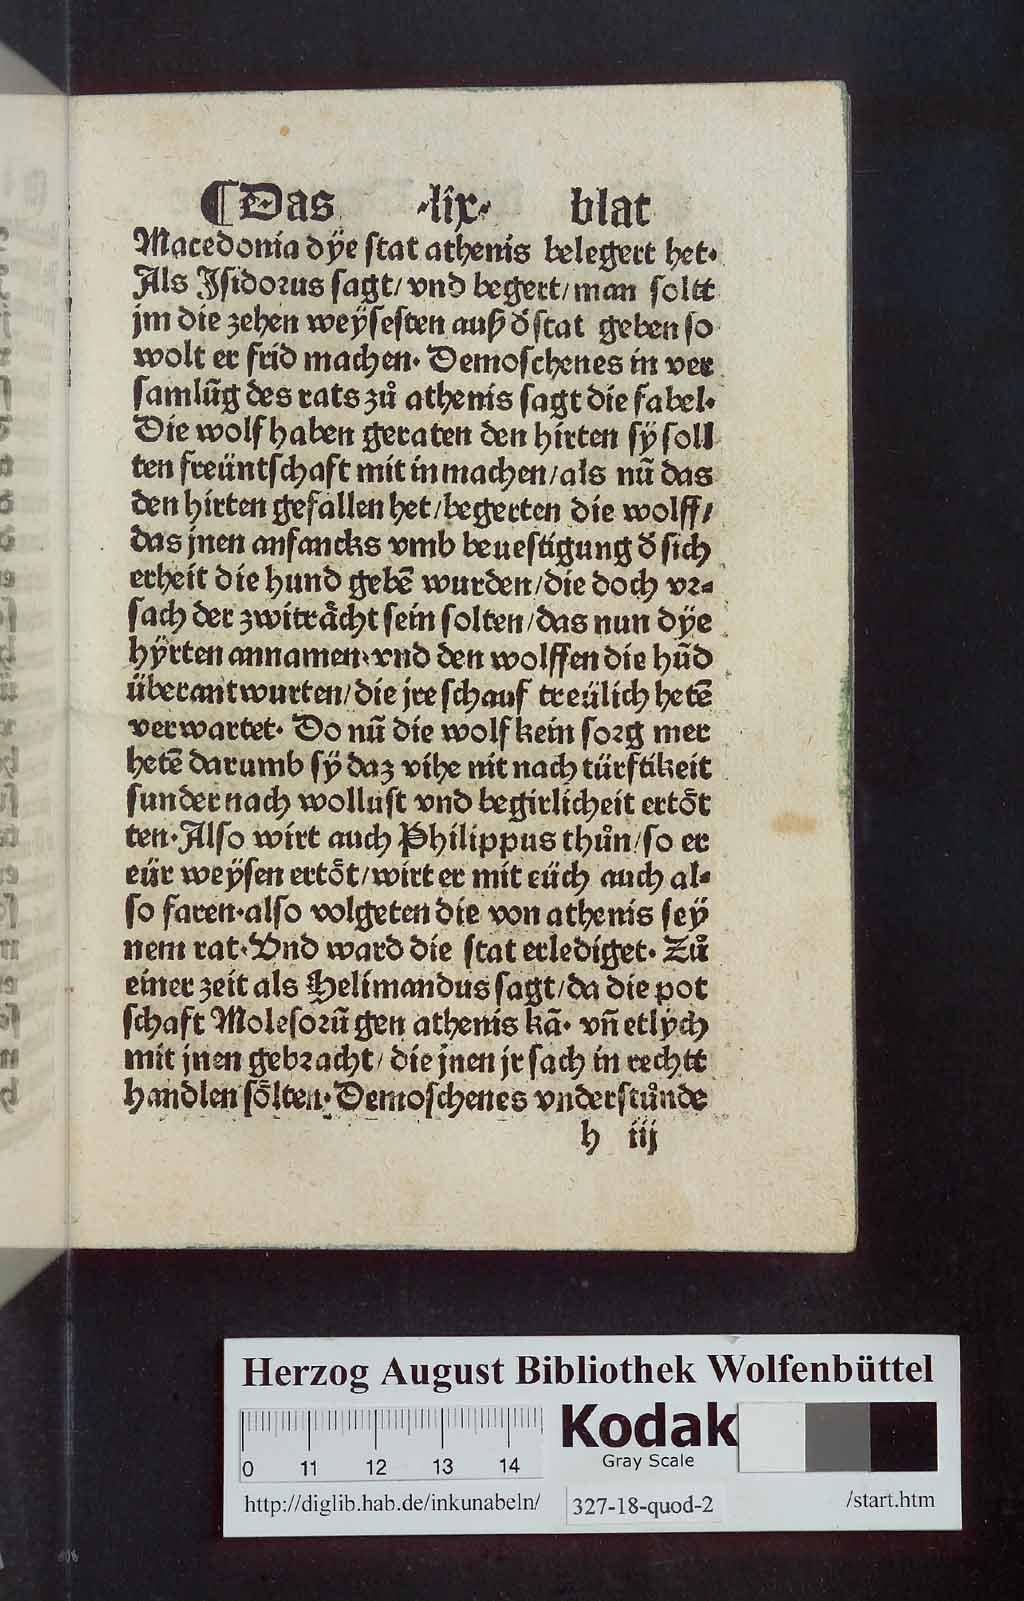 ⸿Das ·lix· blat
Macedonia dÿe stat athenis belegert het·
Als Isidorus sagt/ vnd begert/ man soltt
jm die zehen weÿsesten auß d̛ stat geben so
wolt er frid machen· Demoschenes in ver
samlūg des rats zů athenis sagt die fabel·
Die wolf haben geraten den hirten sÿ soll
ten freüntschaft mit in machen/ als nū das
den hirten gefallen het/ begerten die wolff/
das jnen anfancks vmb beuestigung d̛ sich
erheit die hund gebē wurden/ die doch vr⸗
sach der zwitrǎcht sein solten/ das nun dÿe
hÿrten annamen· vnd den wolffen die hūd
überantwurten/ die jre schauf treülich hetē
verwartet· Do nū die wolf kein sorg mer
hetē darumb sÿ daz vihe nit nach türftikeit
sunder nach wollust vnd begirlicheit ertöt
ten· Also wirt auch Philippus thůn/ so er
eür weÿsen ertöt/ wirt er mit eüch auch al⸗
so faren· also volgeten die von athenis seÿ
nem rat· Vnd ward die stat erlediget· Zů
einer zeit als Helimandus sagt/ da die pot
schaft Molesorū gen athenis kā· vn̄ etlych
mit jnen gebracht/ die jnen jr sach in rechtt
handlen sölten· Demoschenes vnderstůnde
h iij
Herzog August Bibliothek Wolfenbüttel
0 11 12 13 14
Kodak
Gray Scale
http://diglib.hab.de/inkunabeln/ 327-18-quod-2 /start.htm